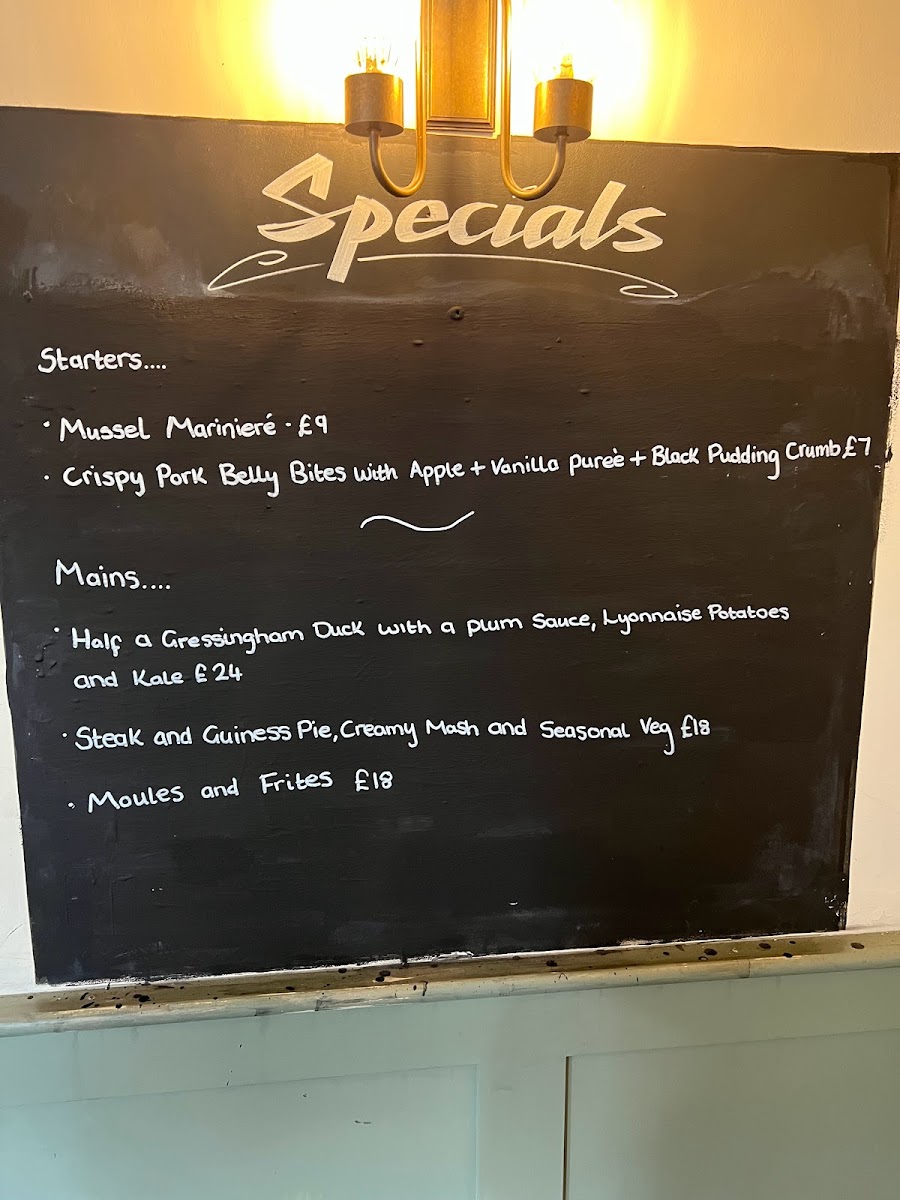 Specials
Starters....
• Mussel Marinieré • £9
• Crispy Pork Belly Bites with Apple + Vanilla pureè + Black Pudding Crumb £7
Mains....
• Half a Gressingham Duck with a plum Sauce, Lyonnaise Potatoes
and Kale £24
• Steak and Guiness Pie, Creamy Mash and Seasonal Veg £18
• Moules and Frites £18